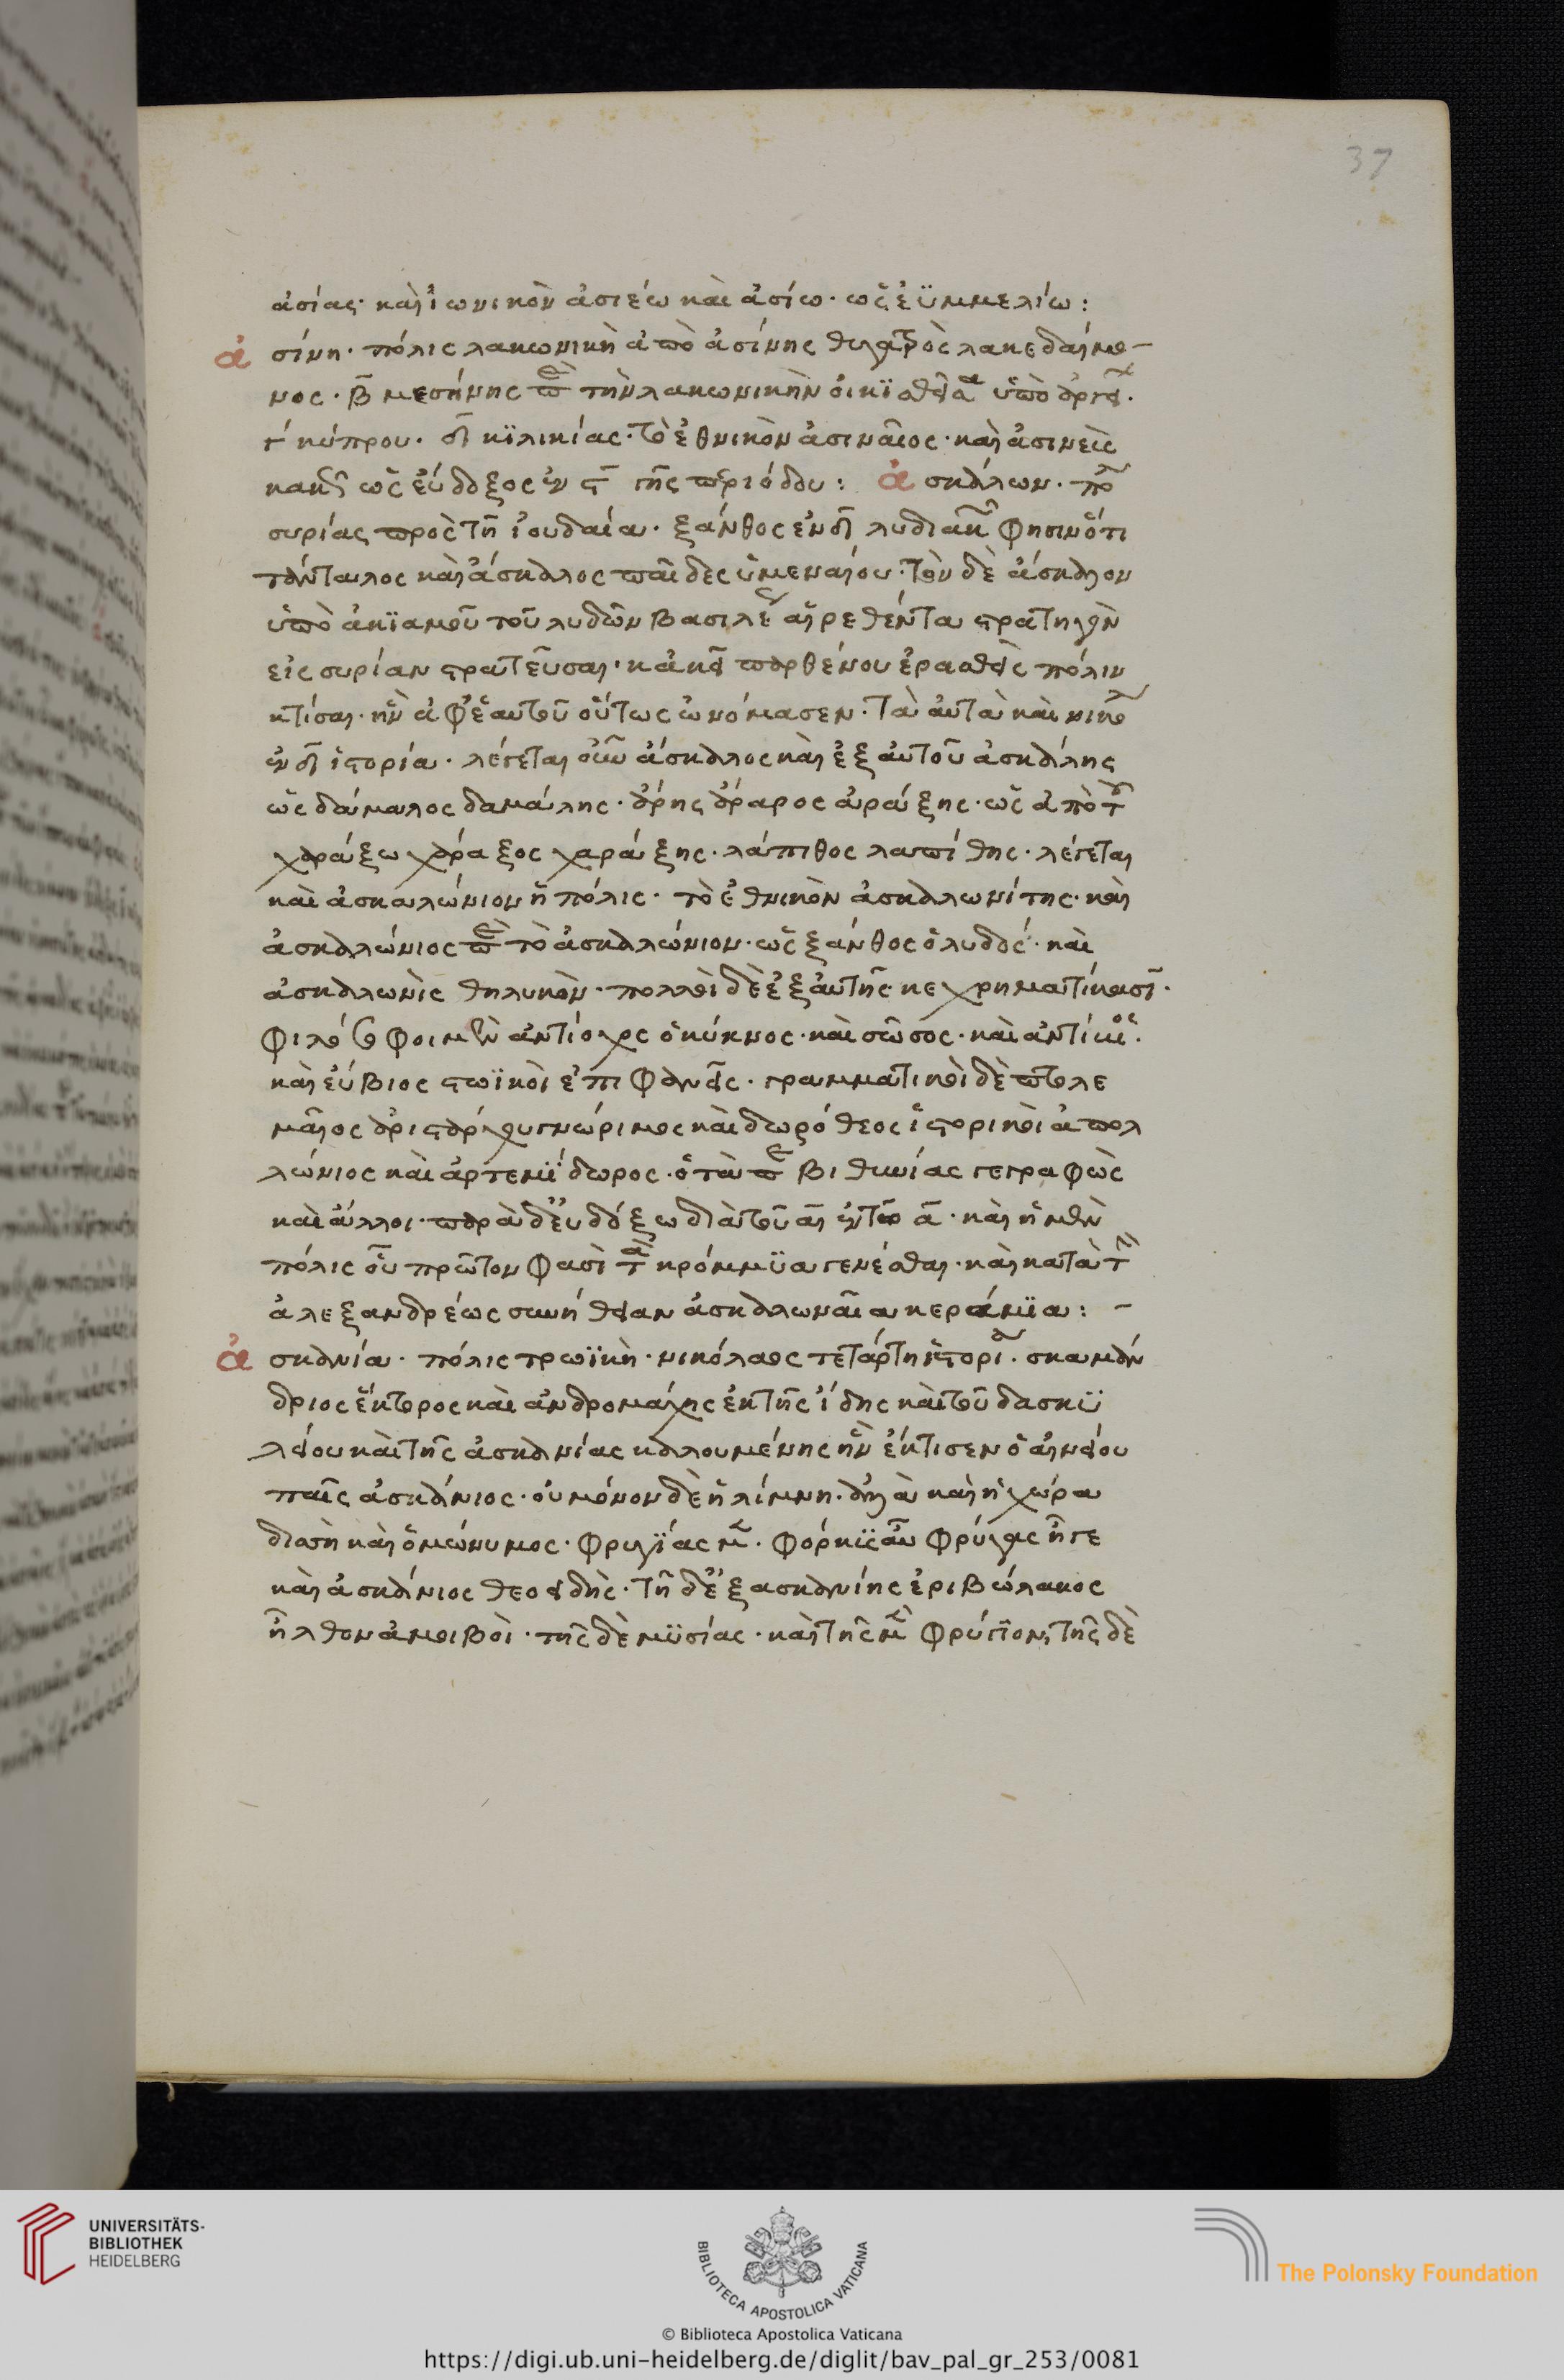 37
ἀσίας· καὶ ἰωνικὸν ἀσιέω καὶ ἀσίω· ὡς ἐϋμμελίω:
ἀσίνη· πόλις λακωνικὴ ἀπὸ ἀσίνης θυγατρὸς λακεδαίμο-
νος· β̄ μεσήνης
τὴν λακωνικὴν
ὑπὸ
γ́ κύπρου· δ̄ κϊλικίας· τὸ ἐθνικὸν ἀσιναῖος· καὶ ἀσινεὺς
ὡς εὔδοξος ἐν ϛ̄ γῆς περιόδου: ἀσκάλων· πο
συρίας πρὸς τῆ ἰουδαία· ξάνθος ἐν δ̄ λυδιακ φησὶν ὅτι
τάνταλος καὶ ἄσκαλος παῖδες ὑμεναίου· τὸν δὲ ἄσκαλον
ὑπὸ ἀκϊαμοῦ τοῦ λυδῶν βασιλέ αἱρεθέντα στρατηγὸν
εἰς συρίαν στρατεῦσαι· κἀκεῖ παρθένου ἐρασθεὶς πόλιν
κτίσαι· ἣν ἀφ' ἑαυτοῦ οὕτως ὠνόμασεν· τὰ αὐτὰ καὶ νικο
ἐν δ̄ ἱστορία· λέγεται οὖν ἄσκαλος καὶ ἐξ αὐτοῦ ἀσκάλης
ὡς δάμαλος δαμάλης· ἄρης ἄραρος ἀράξης· ὡς ἀπὸ τ
χαράξω χάραξος χαράξης· λάπιθος λαπίθης· λέγεται
καὶ ἀσκαλώνιον ἡ πόλις· τὸ ἐθνικὸν ἀσκαλωνίτης· καὶ
ἀσκαλώνιος
τὸ ἀσκαλώνιον· ὡς ξάνθος ὁ λυδός· καὶ
ἀσκαλωνὶς θηλυκόν· πολλοὶ δὲ ἐξ αὐτῆς κεχρηματίκασι·
φιλό
ἀντίοχος ὁ κύκνος· καὶ σῶσος· καὶ ἀντίβιος·
καὶ εὔβιος στωϊκοὶ ἐπιφανεῖς· γραμματικοὶ δὲ πτολε
μαῖος ἀριστάρχου γνώριμος καὶ δωρόθεος ἱστορικοὶ ἀπολ
λώνιος καὶ ἀρτεμΐδωρος· ὁ τὰ π βιθυνίας γεγραφὼς
καὶ ἄλλοι· παρὰ δ' εὐδόξω διὰ τοῦ αι ἐν τῶ ᾱ· καὶ ἡ μὲν
πόλις οὗ πρῶτον φασὶ τὰ κρόμμϋα γενέσθαι· καὶ κατὰ τ
ἀλεξανδρέως συνήθειαν ἀσκαλωναῖα κεράμϊα: -
ἀσκανία· πόλις τρωϊκὴ· νικόλαος τετάρτη ἱστορί· σκαμάν
δριος ἕκτορος καὶ ἀνδρομάχης ἐκ τῆς ἴδης καὶ τοῦ δασκυ
λείου καὶ τῆς ἀσκανίας καλουμένης ἣν ἔκτισεν ὁ αἰνείου
παῖς ἀσκάνιος· οὐ μόνον δὲ ἡ λίμνη· ἀλλὰ καὶ ἡ χώρα
δισσὴ καὶ ὁμώνυμος· φρυγΐας μ· φόρκϋς αὖ φρύγας ἦγε
καὶ ἀσκάνιος θεοειδὴς· τῆ δ' ἐξ ασκανίης ἐριβώλακος
ἦλθον ἀμοιβοὶ· τῆς δὲ μϋσίας· καὶ τῆς μ φρύγϊον, τῆς δὲ
UNIVERSITÄTS-
BIBLIOTHEK
HEIDELBERG
BIBLIOTECA APOSTOLICA VATICANA
The Polonsky Foundation
© Biblioteca Apostolica Vaticana
https://digi.ub.uni-heidelberg.de/diglit/bav_pal_gr_253/0081